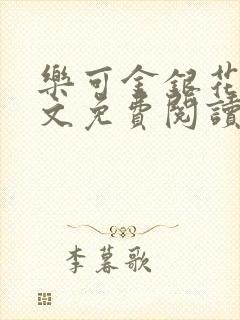 樂可金銀花
文免費閱讀
李暮歌